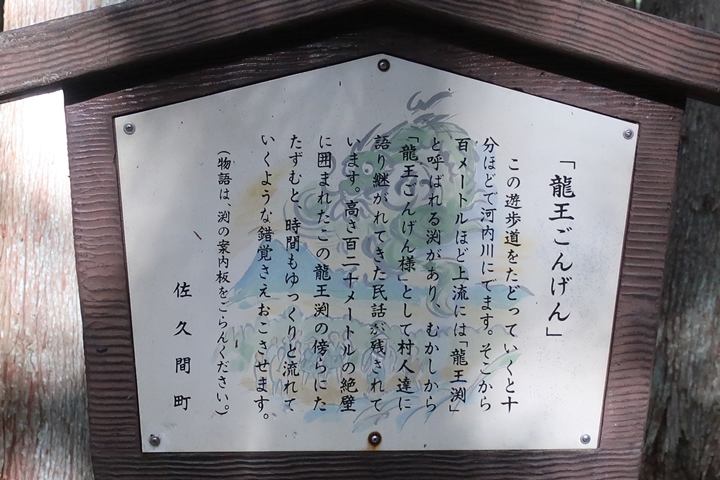 「龍王ごんげん」
この遊歩道をたどっていくと十
分ほどで河内川にてます。そこから
百メートルほど上流には「龍王渕」
と呼ばれる渕があり、むかしから
「龍王ごんげん様」として村人達に
語り継がれてきた民話が残されて
います。高さ百二十メートルの絶壁
に囲まれたこの龍王渕の傍らにた
たずむと、時間もゆっくりと流れて
いくような錯覚さえおこさせます。
(物語は、渕の案内板をごらんください。)
佐久間町